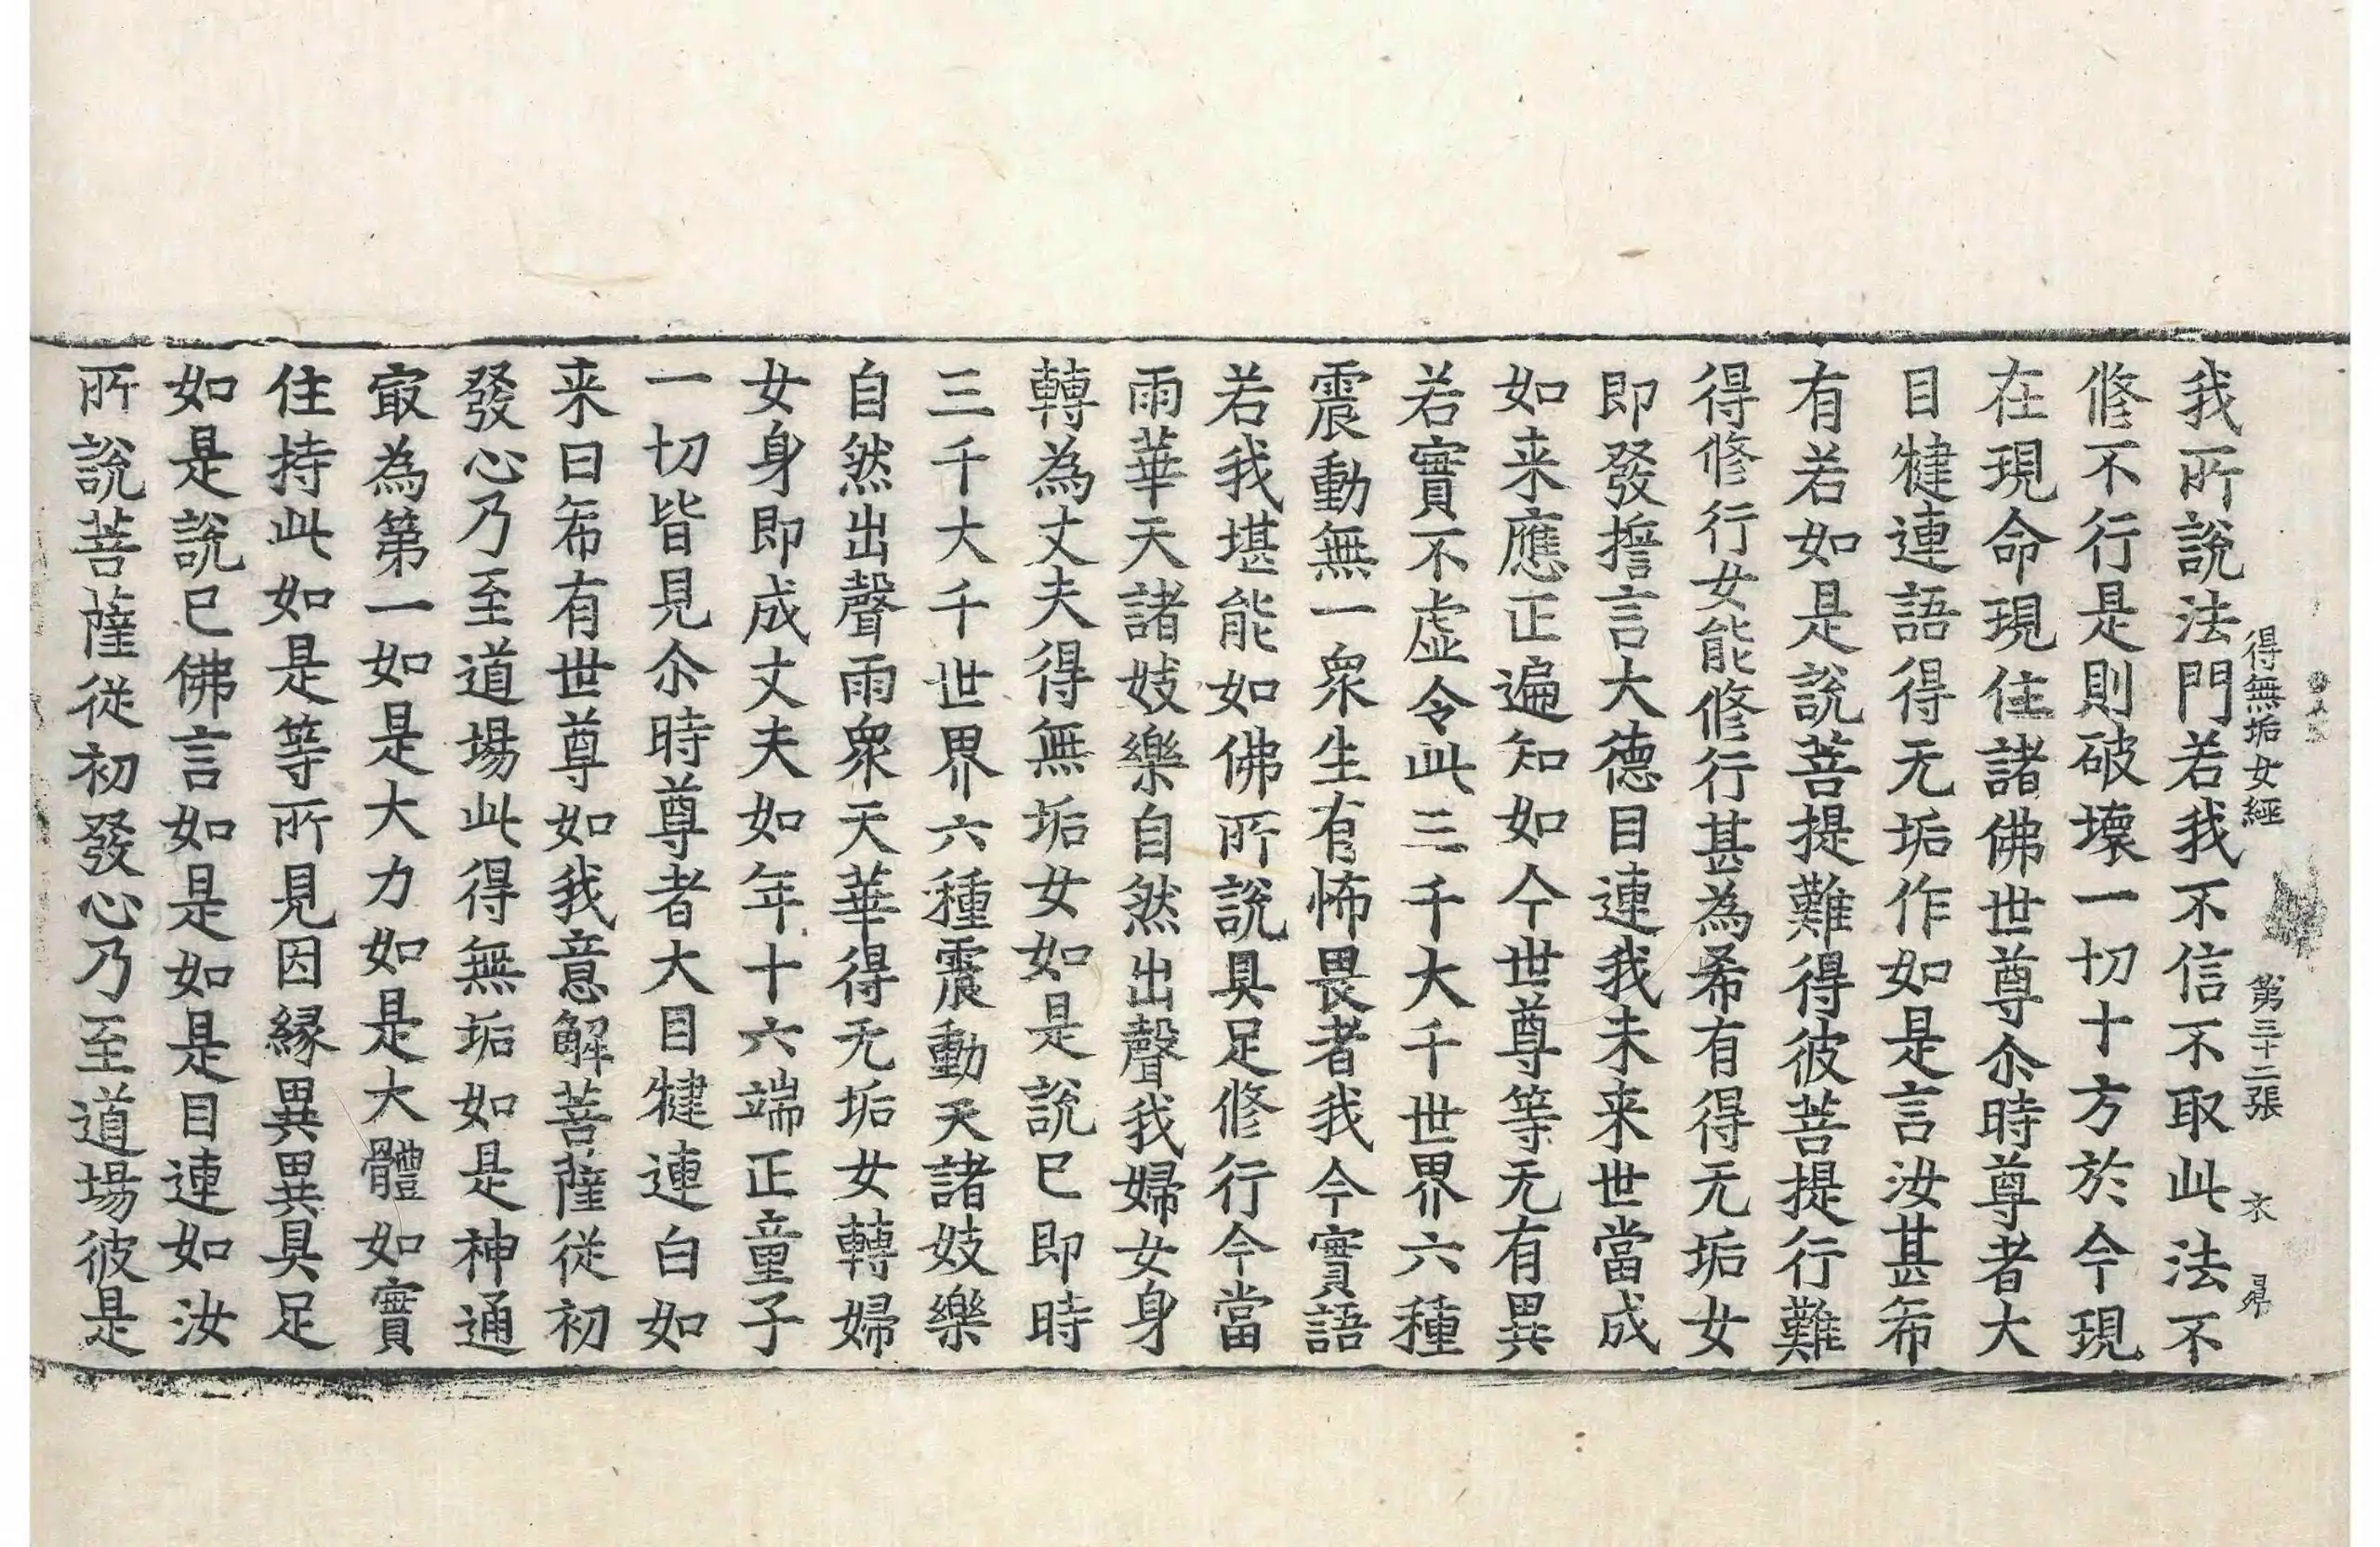 得無垢女經 第三十二張 衣
我所説法門若我不信不取此法不
修不行是則破壞一切十方於今現
在現命現住諸佛世尊尒時尊者大
目揵連語得无垢作如是言汝甚希
有若如是説菩提難得彼菩提行難
得修行女能修行甚為希有得无垢女
即發誓言大德目連我未来世當成
如来應正遍知如今世尊等无有異
若實不虚令此三千大千世界六種
震動無一衆生有怖畏者我今實語
若我堪能如佛所説具足修行今當
雨華天諸妓樂自然出聲我婦女身
轉為丈夫得無垢女如是説已即時
三千大千世界六種震動天諸妓樂
自然出聲雨衆天華得无垢女轉婦
女身即成丈夫如年十六端正童子
一切皆見尒時尊者大目揵連白如
来曰希有世尊如我意解菩薩従初
發心乃至道場此得無垢如是神通
㝡為第一如是大力如是大體如實
住持此如是等所見因縁異異具足
如是説已佛言如是如是目連如汝
所説菩薩従初發心乃至道場彼是